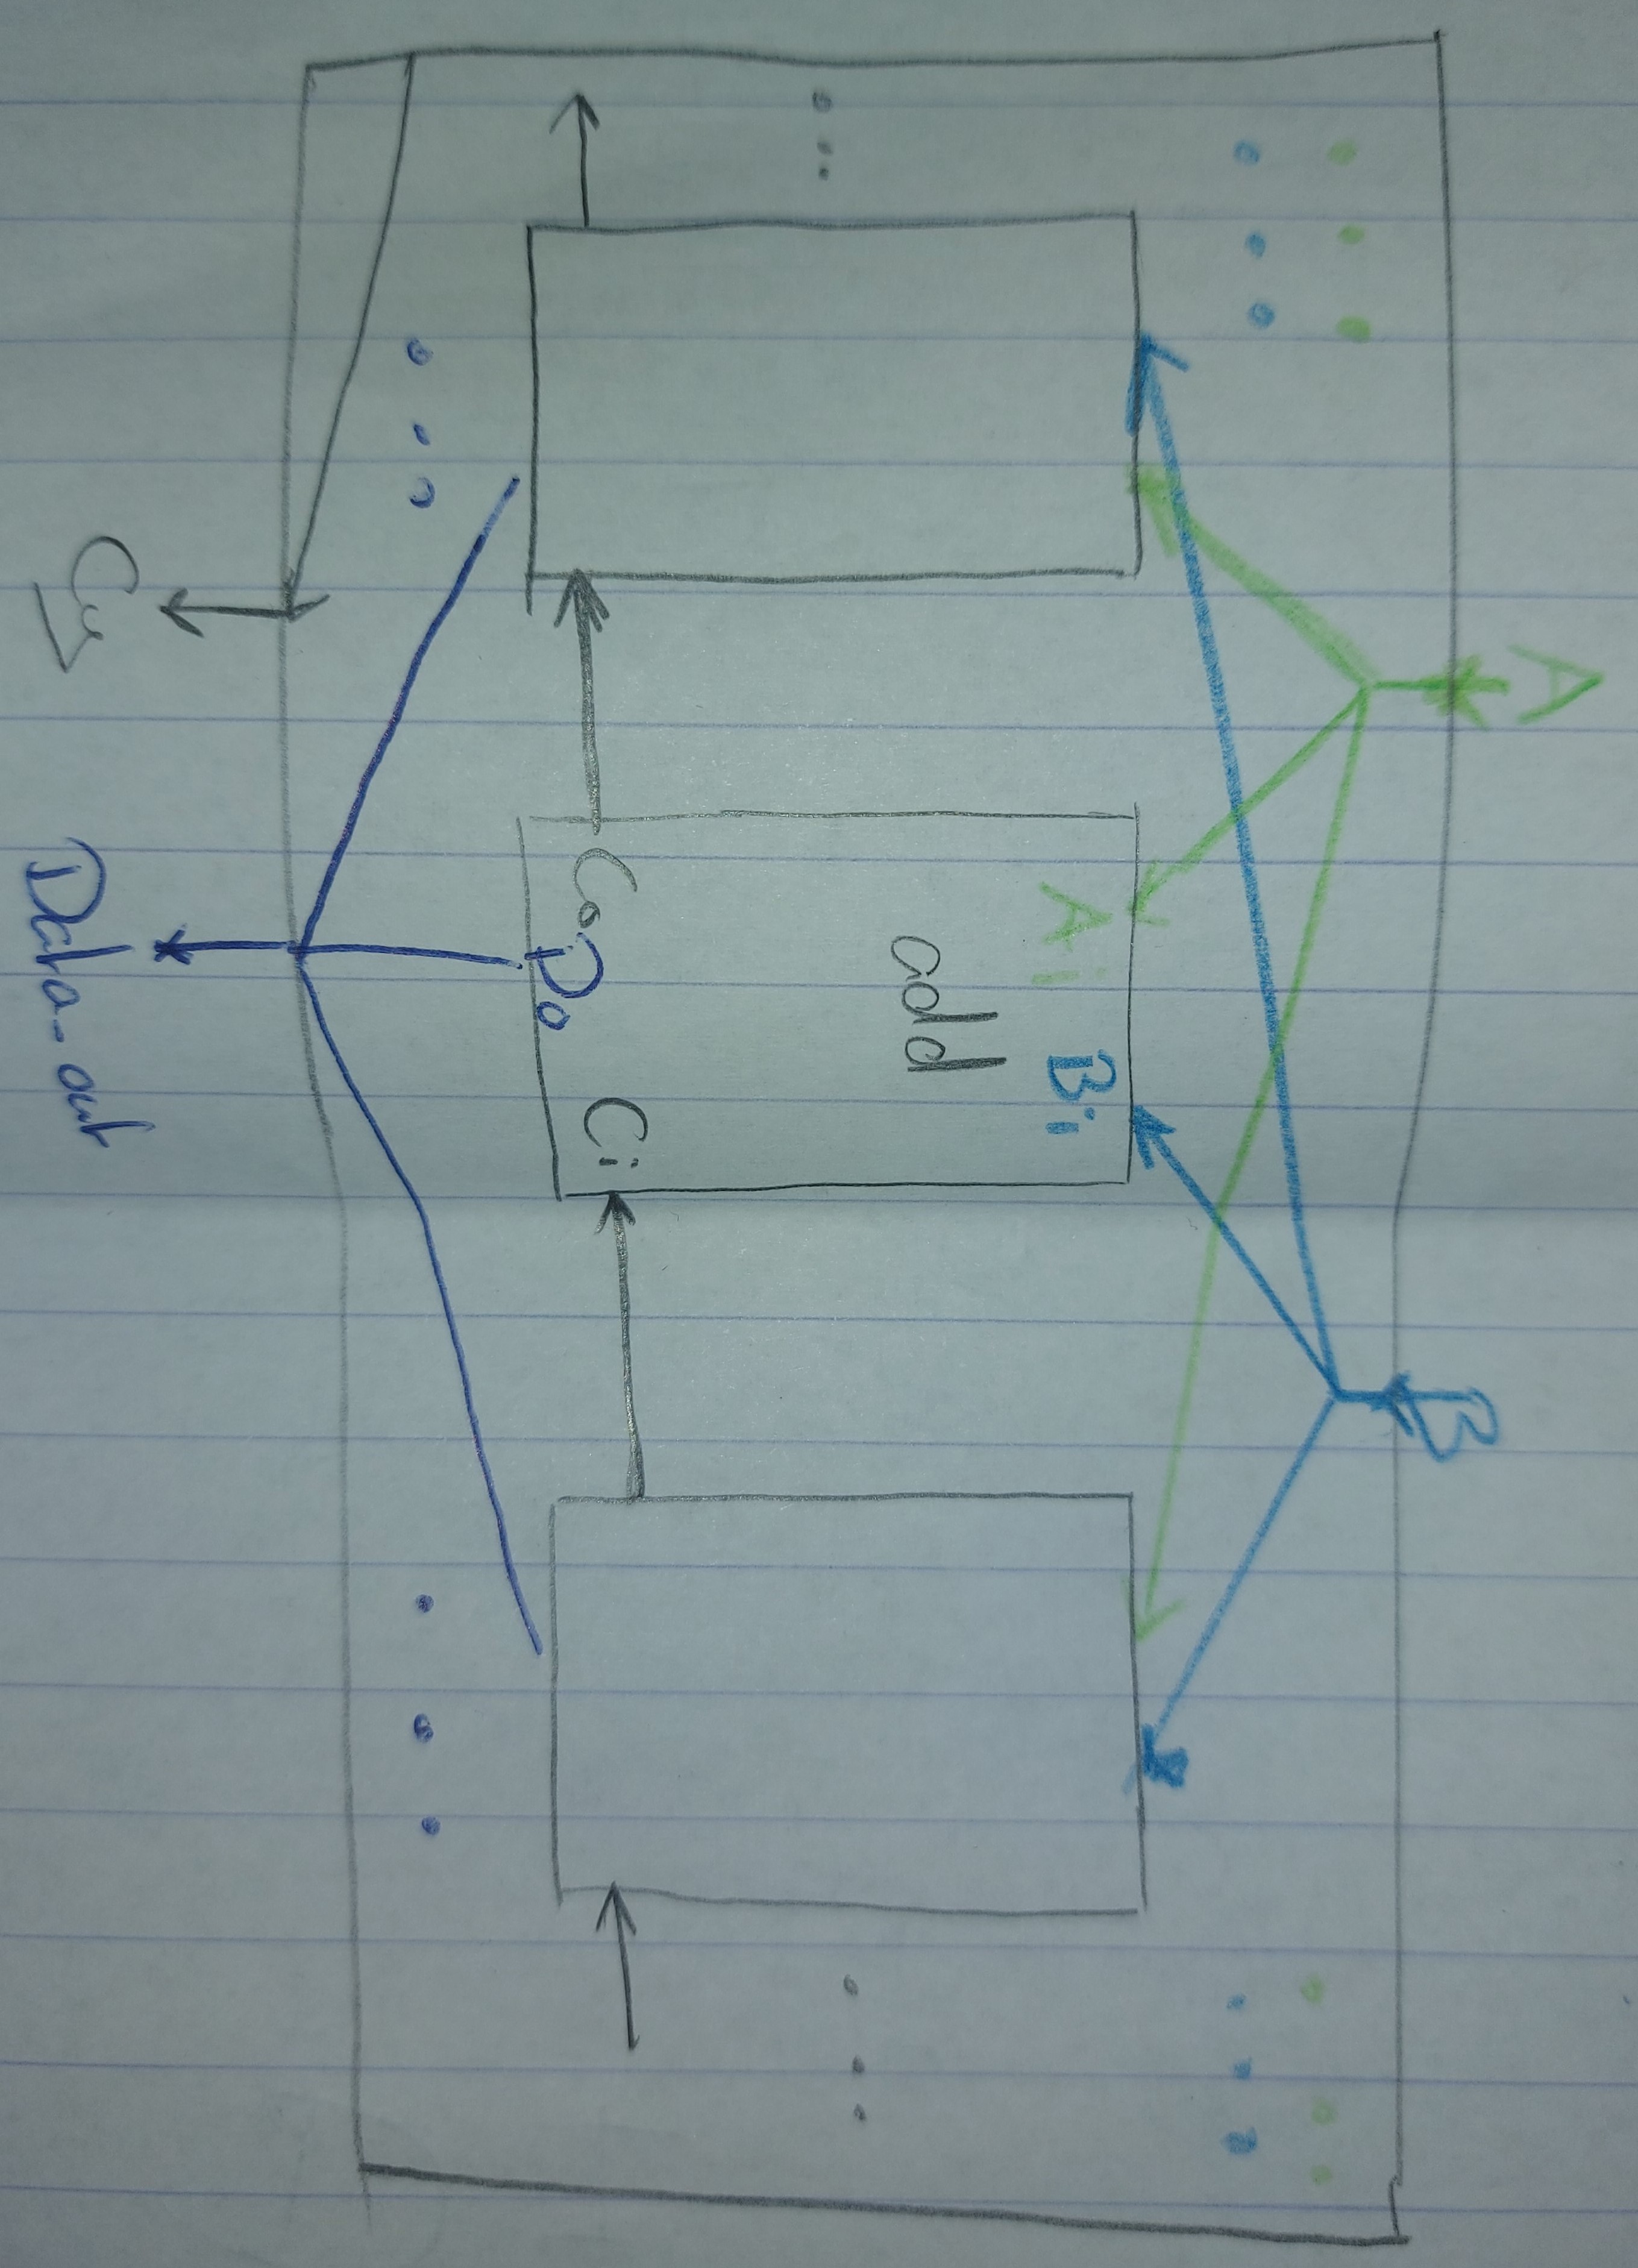 A
B
Ai Bi
add
Co Ci
Do
Cy
Data_out